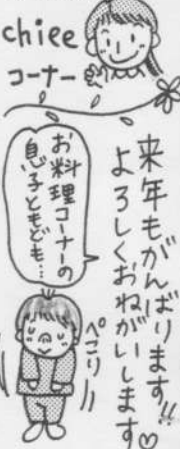 chiee
コーナー
来年もがんばります!!
よろしくおねがいします♡
お料理コーナーの
息子ともども…
ぺこり